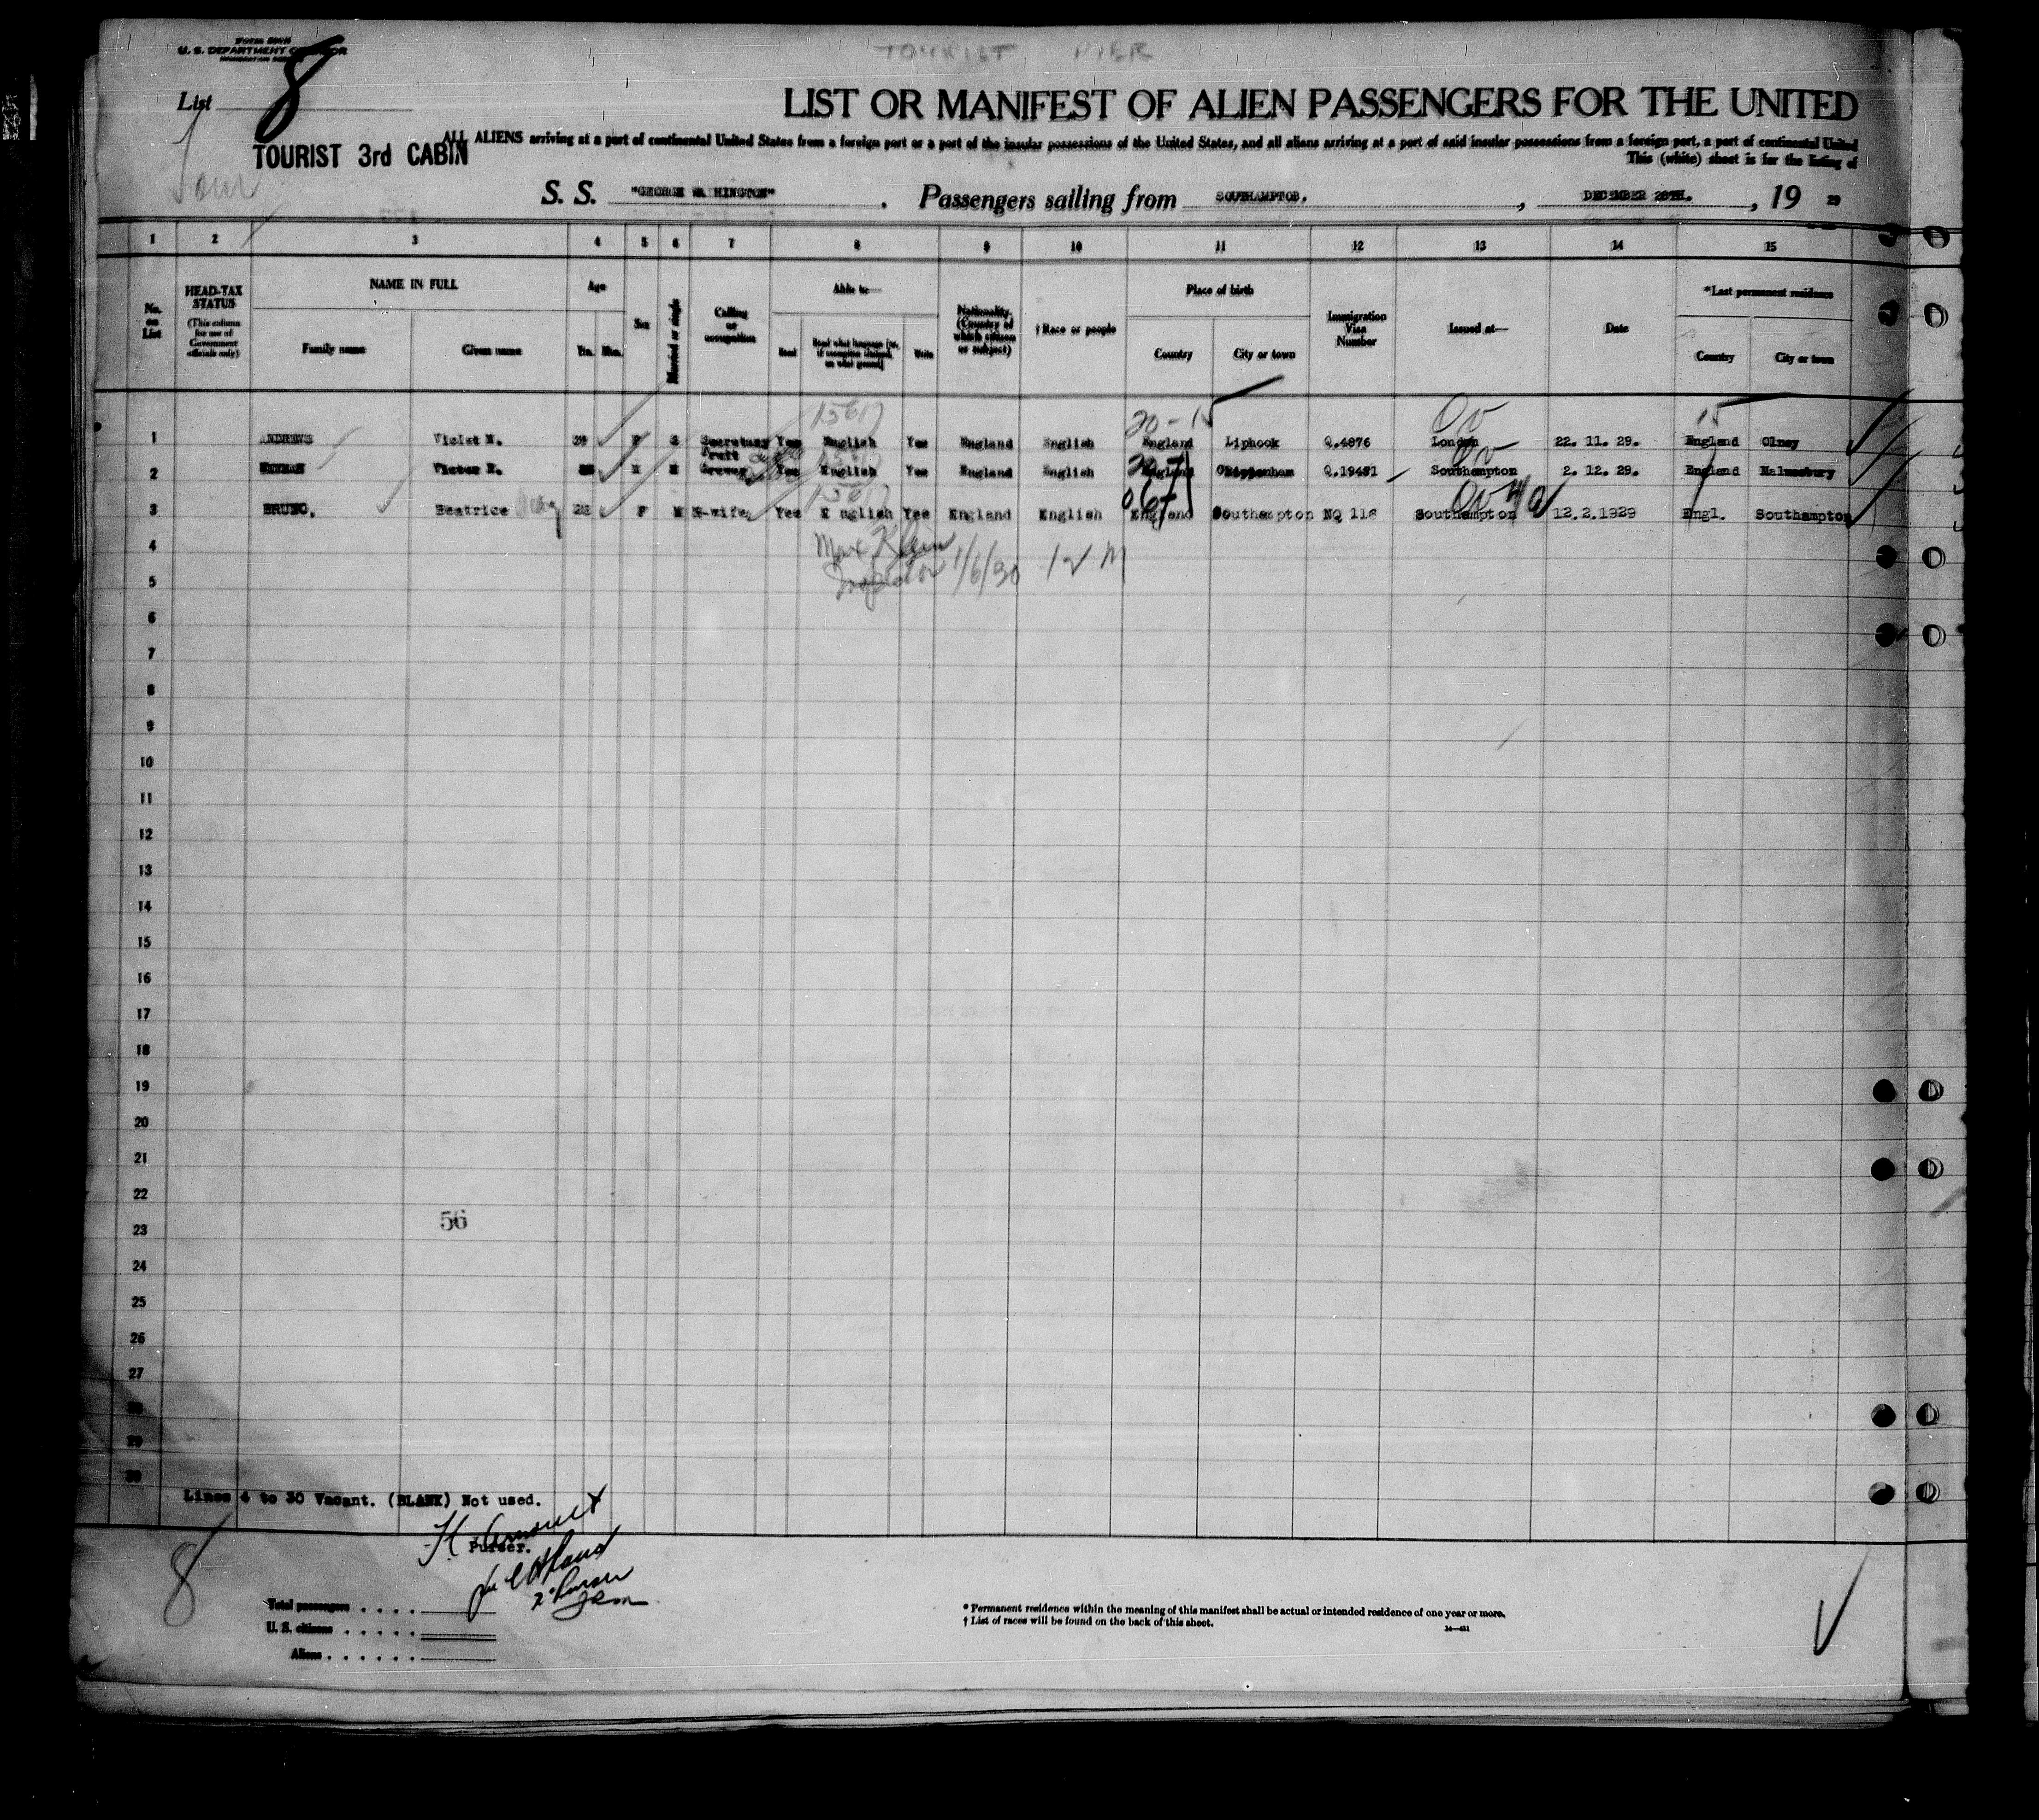 U. S. DEPARTMENT OF LABOR
TOURIST PIER
List 8
LIST OR MANIFEST OF ALIEN PASSENGERS FOR THE UNITED
ALL ALIENS arriving at a port of continental United States from a foreign port or a port of the insular possessions of the United States, and all aliens arriving at a port of said insular possessions from a foreign port, a port of continental United
TOURIST 3rd CABIN
This (white) sheet is for the listing of
S. S. "GEORGE WASHINGTON" . Passengers sailing from SOUTHAMPTON. , DECEMBER 28TH. , 19 29
1 2 3 4 5 6 7 8 9 10 11 12 13 14 15
No. on List
HEAD-TAX STATUS (This column for use of Government officials only)
NAME IN FULL
Family name Given name
Age
Yrs. Mos.
Sex
Married or single
Calling or occupation
Able to—
Read Read what language (or, if exemption claimed, on what ground) Write
Nationality. (Country of which citizen or subject)
† Race or people
Place of birth
Country City or town
Immigration Visa Number
Issued at—
Date
*Last permanent residence
Country City or town
1 ANDREWS Violet M. F S Secretary Yes English Yes England English England Liphook Q.4876 London 22. 11. 29. England Olney
2 Victor M M Fruit Grower Yes English Yes England English England Chippenham Q.19451 Southampton 2. 12. 29. England Malmesbury
3 BRUNO, Beatrice F M H-wife Yes E nglish Yes England English England Southampton NQ 118 Southampton 12.2.1929 Engl. Southampton
4 Max Klein
5 Inspector 1/6/30
6
7
8
9
10
11
12
13
14
15
16
17
18
19
20
21
22
23 56
24
25
26
27
28
29
30
Lines 4 to 30 Vacant. (BLANK) Not used.
Purser.
8
Total passengers . . . .
U. S. citizens . . . . .
Aliens . . . . . .
* Permanent residence within the meaning of this manifest shall be actual or intended residence of one year or more.
† List of races will be found on the back of this sheet.